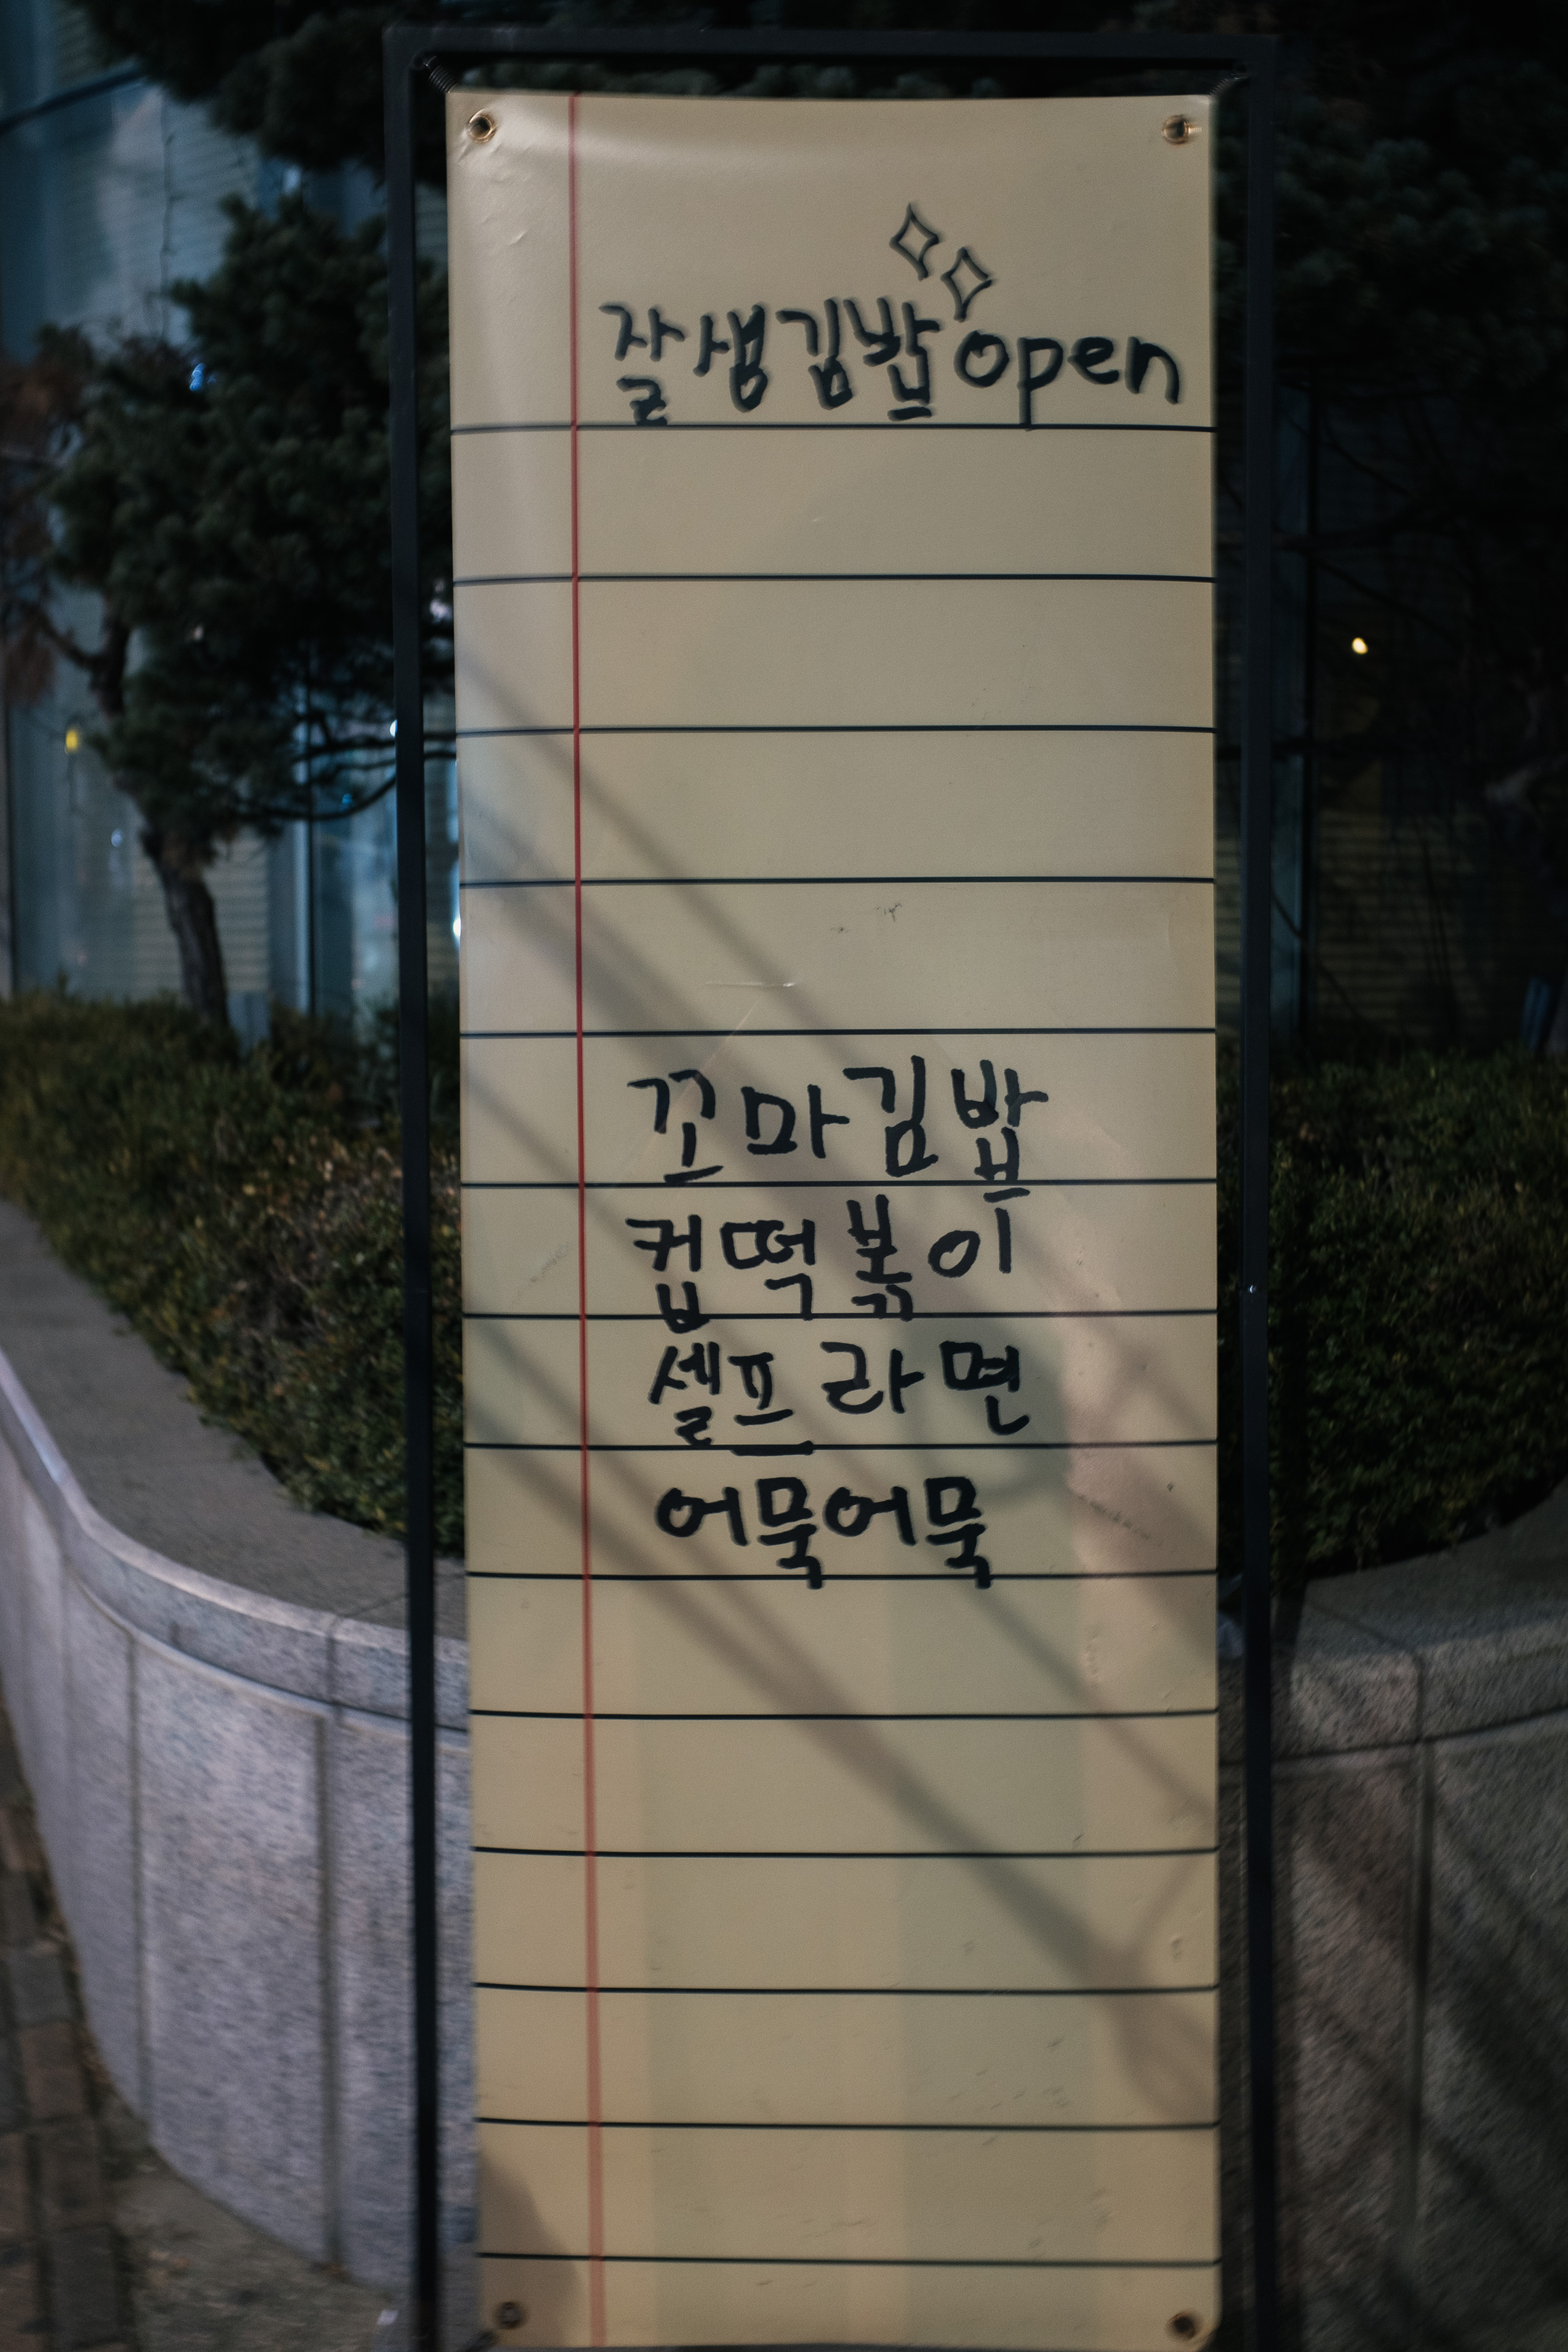 잘생김밥open
꼬마김밥
컵떡볶이
셀프라면
어묵어묵